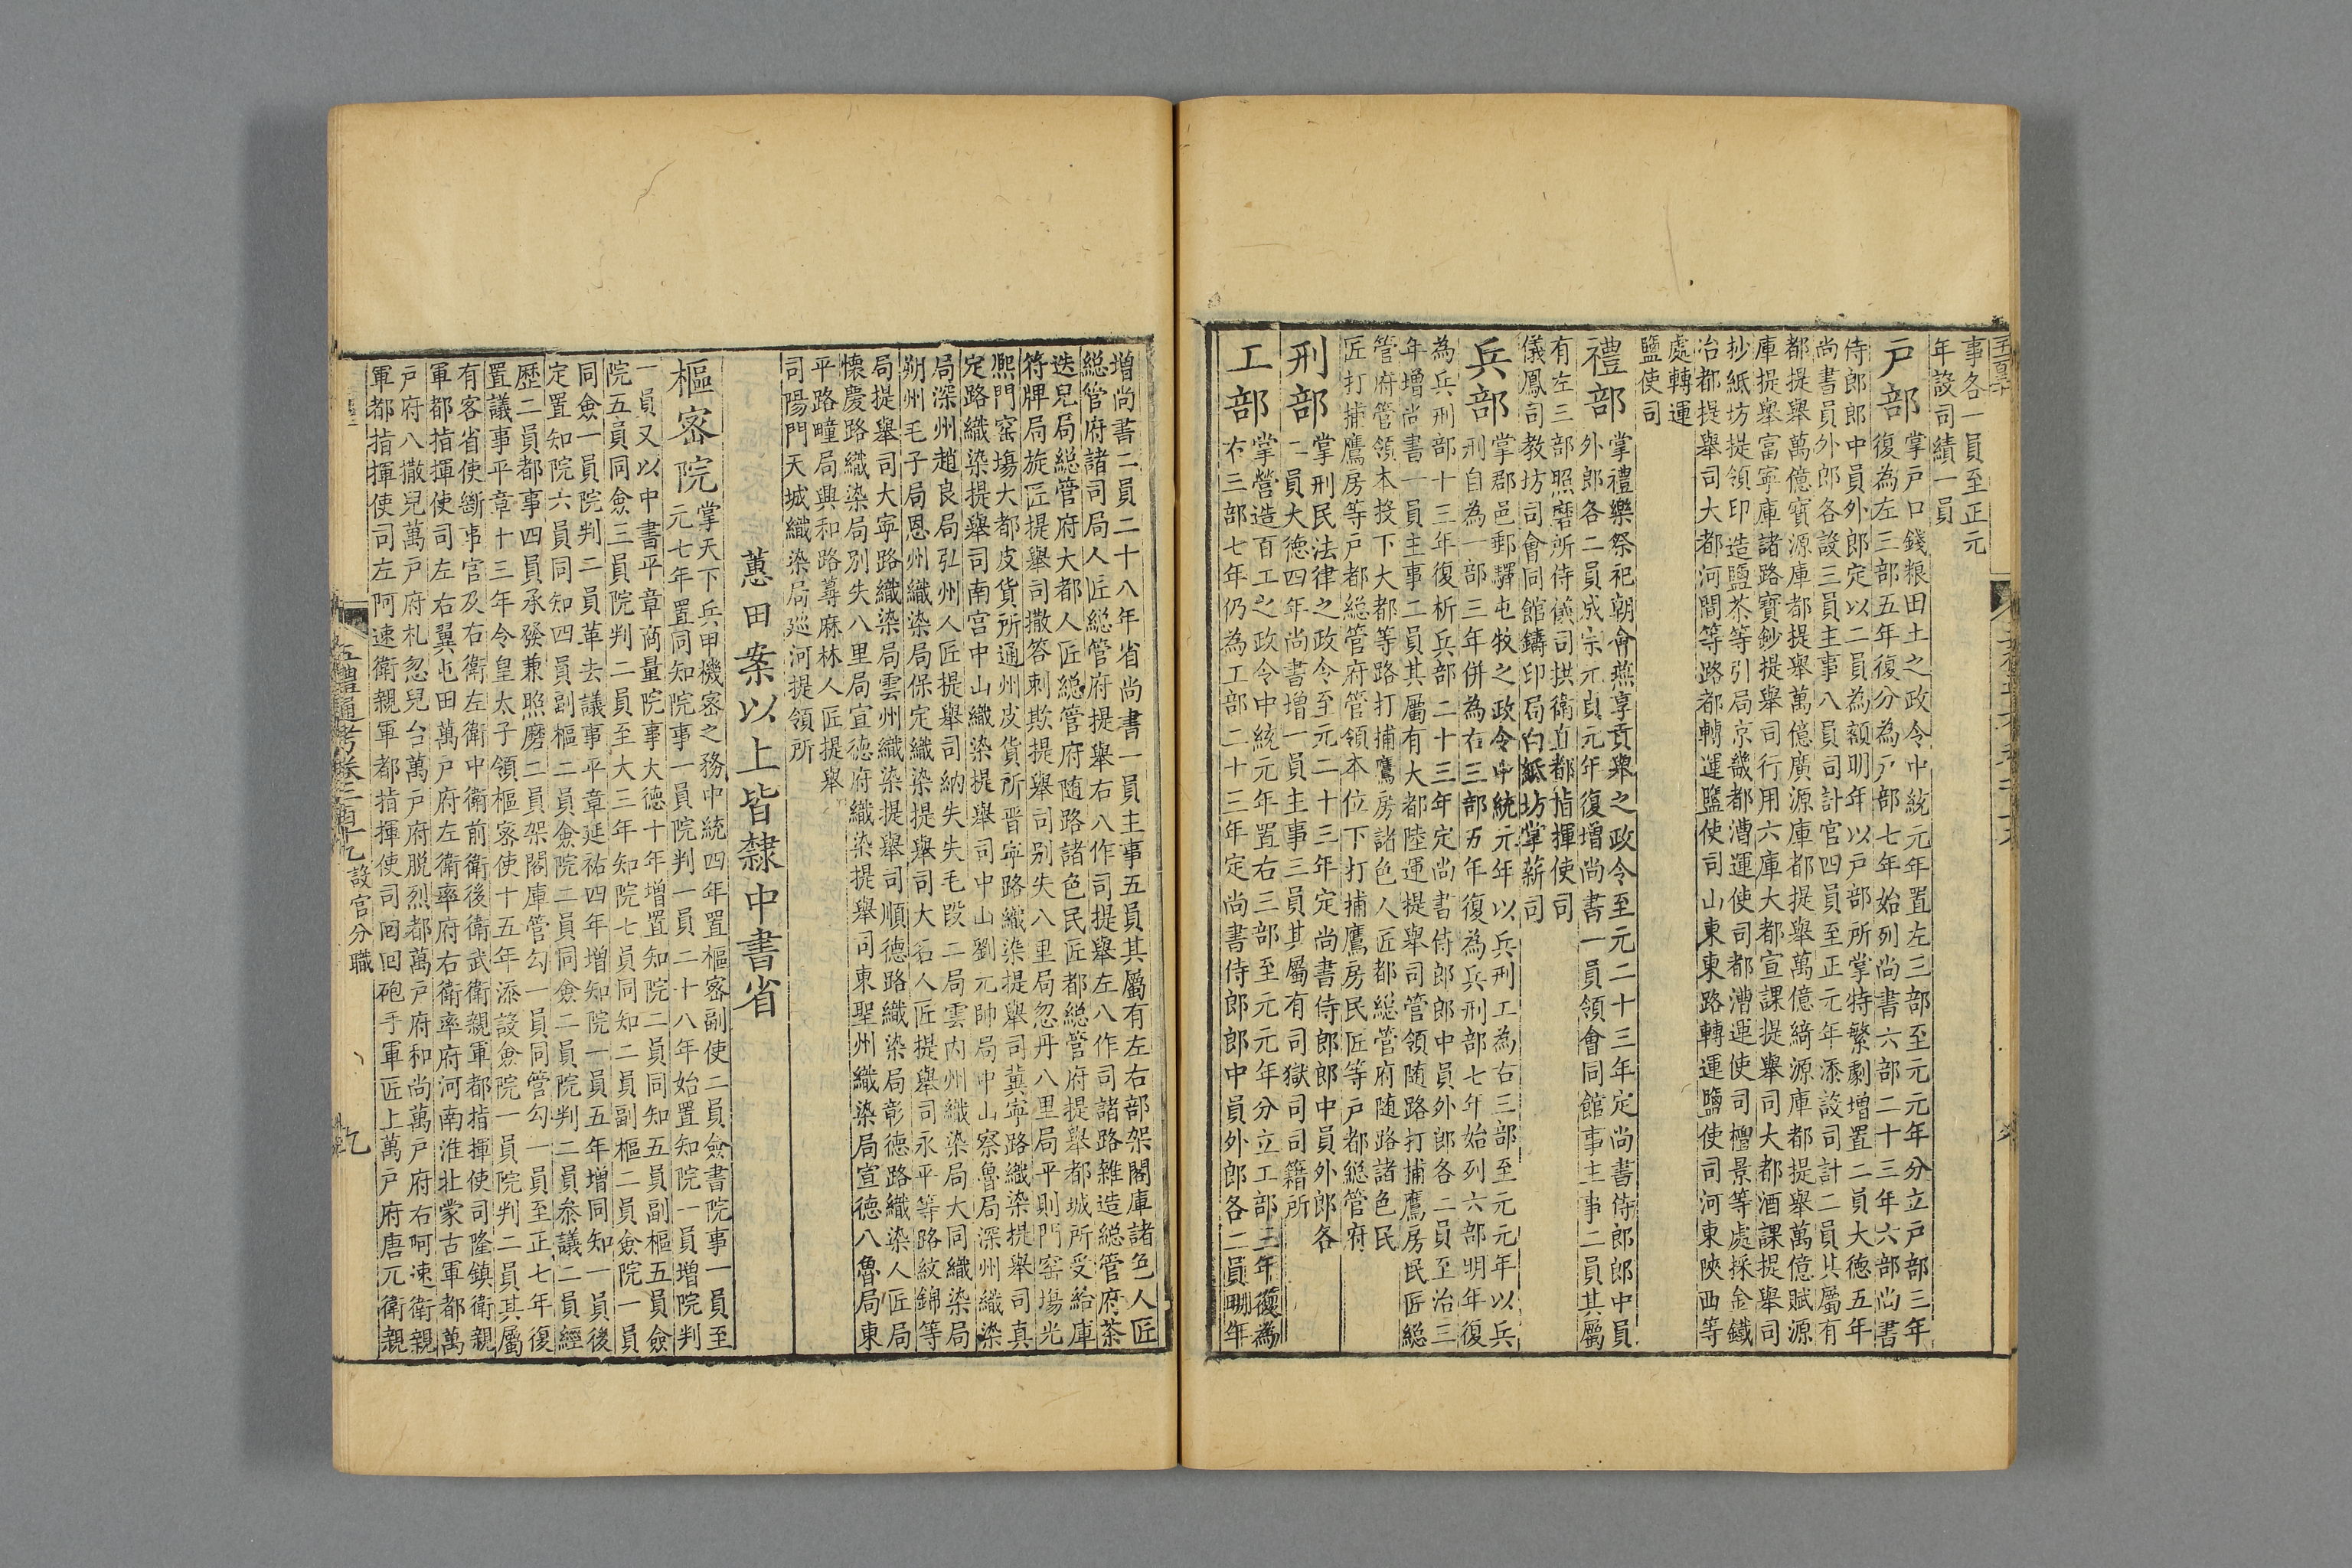 事各一員至正元
年設司績一員
戸部
掌戸口錢粮田土之政令中統元年置左三部至元元年分立戸部三年
復為左三部五年復分為戸部七年始列尚書六部二十三年六部尚書
侍郎郎中員外郎定以二員為額明年以戸部所掌特繁劇增置二員大徳五年
尚書員外郎各設三員主事八員司計官四員至正元年添設司計二員其屬有
都提舉萬億寶源庫都提舉萬億廣源庫都提舉萬億綺源庫都提舉萬億賦源
庫提舉富寧庫諸路寶鈔提舉司行用六庫大都宣課提舉司大都酒課提舉司
抄紙坊提領印造鹽茶等引局京畿都漕運使司都漕運使司檀景等處採金鐵
冶都提舉司大都河間等路都轉運鹽使司山東東路轉運鹽使司河東陝西等
處轉運
鹽使司
禮部
掌禮樂祭祀朝會燕享貢舉之政令至元二十三年定尚書侍郎郎中員
外郎各二員成宗元貞元年復增尚書一員領會同館事主事二員其屬
有左三部照磨所侍儀司拱衛直都指揮使司
儀鳳司教坊司會同館鑄印局白紙坊掌薪司
兵部
掌郡邑郵驛屯牧之政令中統元年以兵刑工為右三部至元元年以兵
刑自為一部三年併為右三部五年復為兵刑部七年始列六部明年復
為兵刑部十三年復析兵部二十三年定尚書侍郎郎中員外郎各二員至治三
年增尚書一員主事二員其屬有大都陸運提舉司管領随路打捕鷹房民匠総
管府管領本投下大都等路打捕鷹房諸色人匠都総管府随路諸色民
匠打捕鷹房等戸都総管府管領本位下打捕鷹房民匠等戸都総管府
刑部
掌刑民法律之政令至元二十三年定尚書侍郎郎中員外郎各
二員大徳四年尚書增一員主事三員其屬有司獄司司籍所
工部
掌營造百工之政令中統元年置右三部至元元年分立工部三年復為
右三部七年仍為工部二十三年定尚書侍郎郎中員外郎各二員明年
增尚書二員二十八年省尚書一員主事五員其屬有左右部架閣庫諸色人匠
総管府諸司局人匠総管府提舉右八作司提舉左八作司諸路雜造総管府茶
迭兒局総管府大都人匠総管府随路諸色民匠都総管府提舉都城所受給庫
符牌局旋匠提舉司撒答剌欺提舉司别失八里局忽丹八里局平則門窑塲光
熙門窑塲大都皮貨所通州皮貨所晋寧路織染提舉司冀寧路織染提舉司真
定路織染提舉司南宫中山織染提舉司中山劉元帥局中山察魯局深州織染
局深州趙良局弘州人匠提舉司納失失毛段二局雲内州織染局大同織染局
朔州毛子局恩州織染局保定織染提舉司大名人匠提舉司永平等路紋錦等
局提舉司大寧路織染局雲州織染提舉司順德路織染局彰德路織染人匠局
懷慶路織染局别失八里局宣徳府織染提舉司東聖州織染局宣德八魯局東
平路疃局興和路蕁麻林人匠提舉
司陽門天城織染局廵河提領所
蕙田案以上皆隸中書省
樞密院
掌天下兵甲機密之務中統四年置樞密副使二員僉書院事一員至
元七年置同知院事一員院判一員二十八年始置知院一員增院判
一員又以中書平章商量院事大徳十年增置知院二員同知五員副樞五員僉
院五員同僉三員院判二員至大三年知院七員同知二員副樞二員僉院一員
同僉一員院判二員革去議事平章延祐四年增知院一員五年增同知一員後
定置知院六員同知四員副樞二員僉院二員同僉二員院判二員叅議二員經
歷二員都事四員承發兼照磨二員架閣庫管勾一員同管勾一員至正七年復
置議事平章十三年令皇太子領樞密使十五年添設僉院一員院判二員其屬
有客省使斷事官及右衛左衛中衛前衛後衛武衛親軍都指揮使司隆鎮衛親
軍都指揮使司左右翼屯田萬戸府左衛率府右衛率府河南淮北蒙古軍都萬
戸府八撒兒萬戸府札忽兒台萬戸府脱烈都萬戸府和尚萬戸府右阿速衛親
軍都指揮使司左阿速衛親軍都指揮使司回回砲手軍匠上萬戸府唐兀衛親
五禮通考卷二百十九 設官分職
九